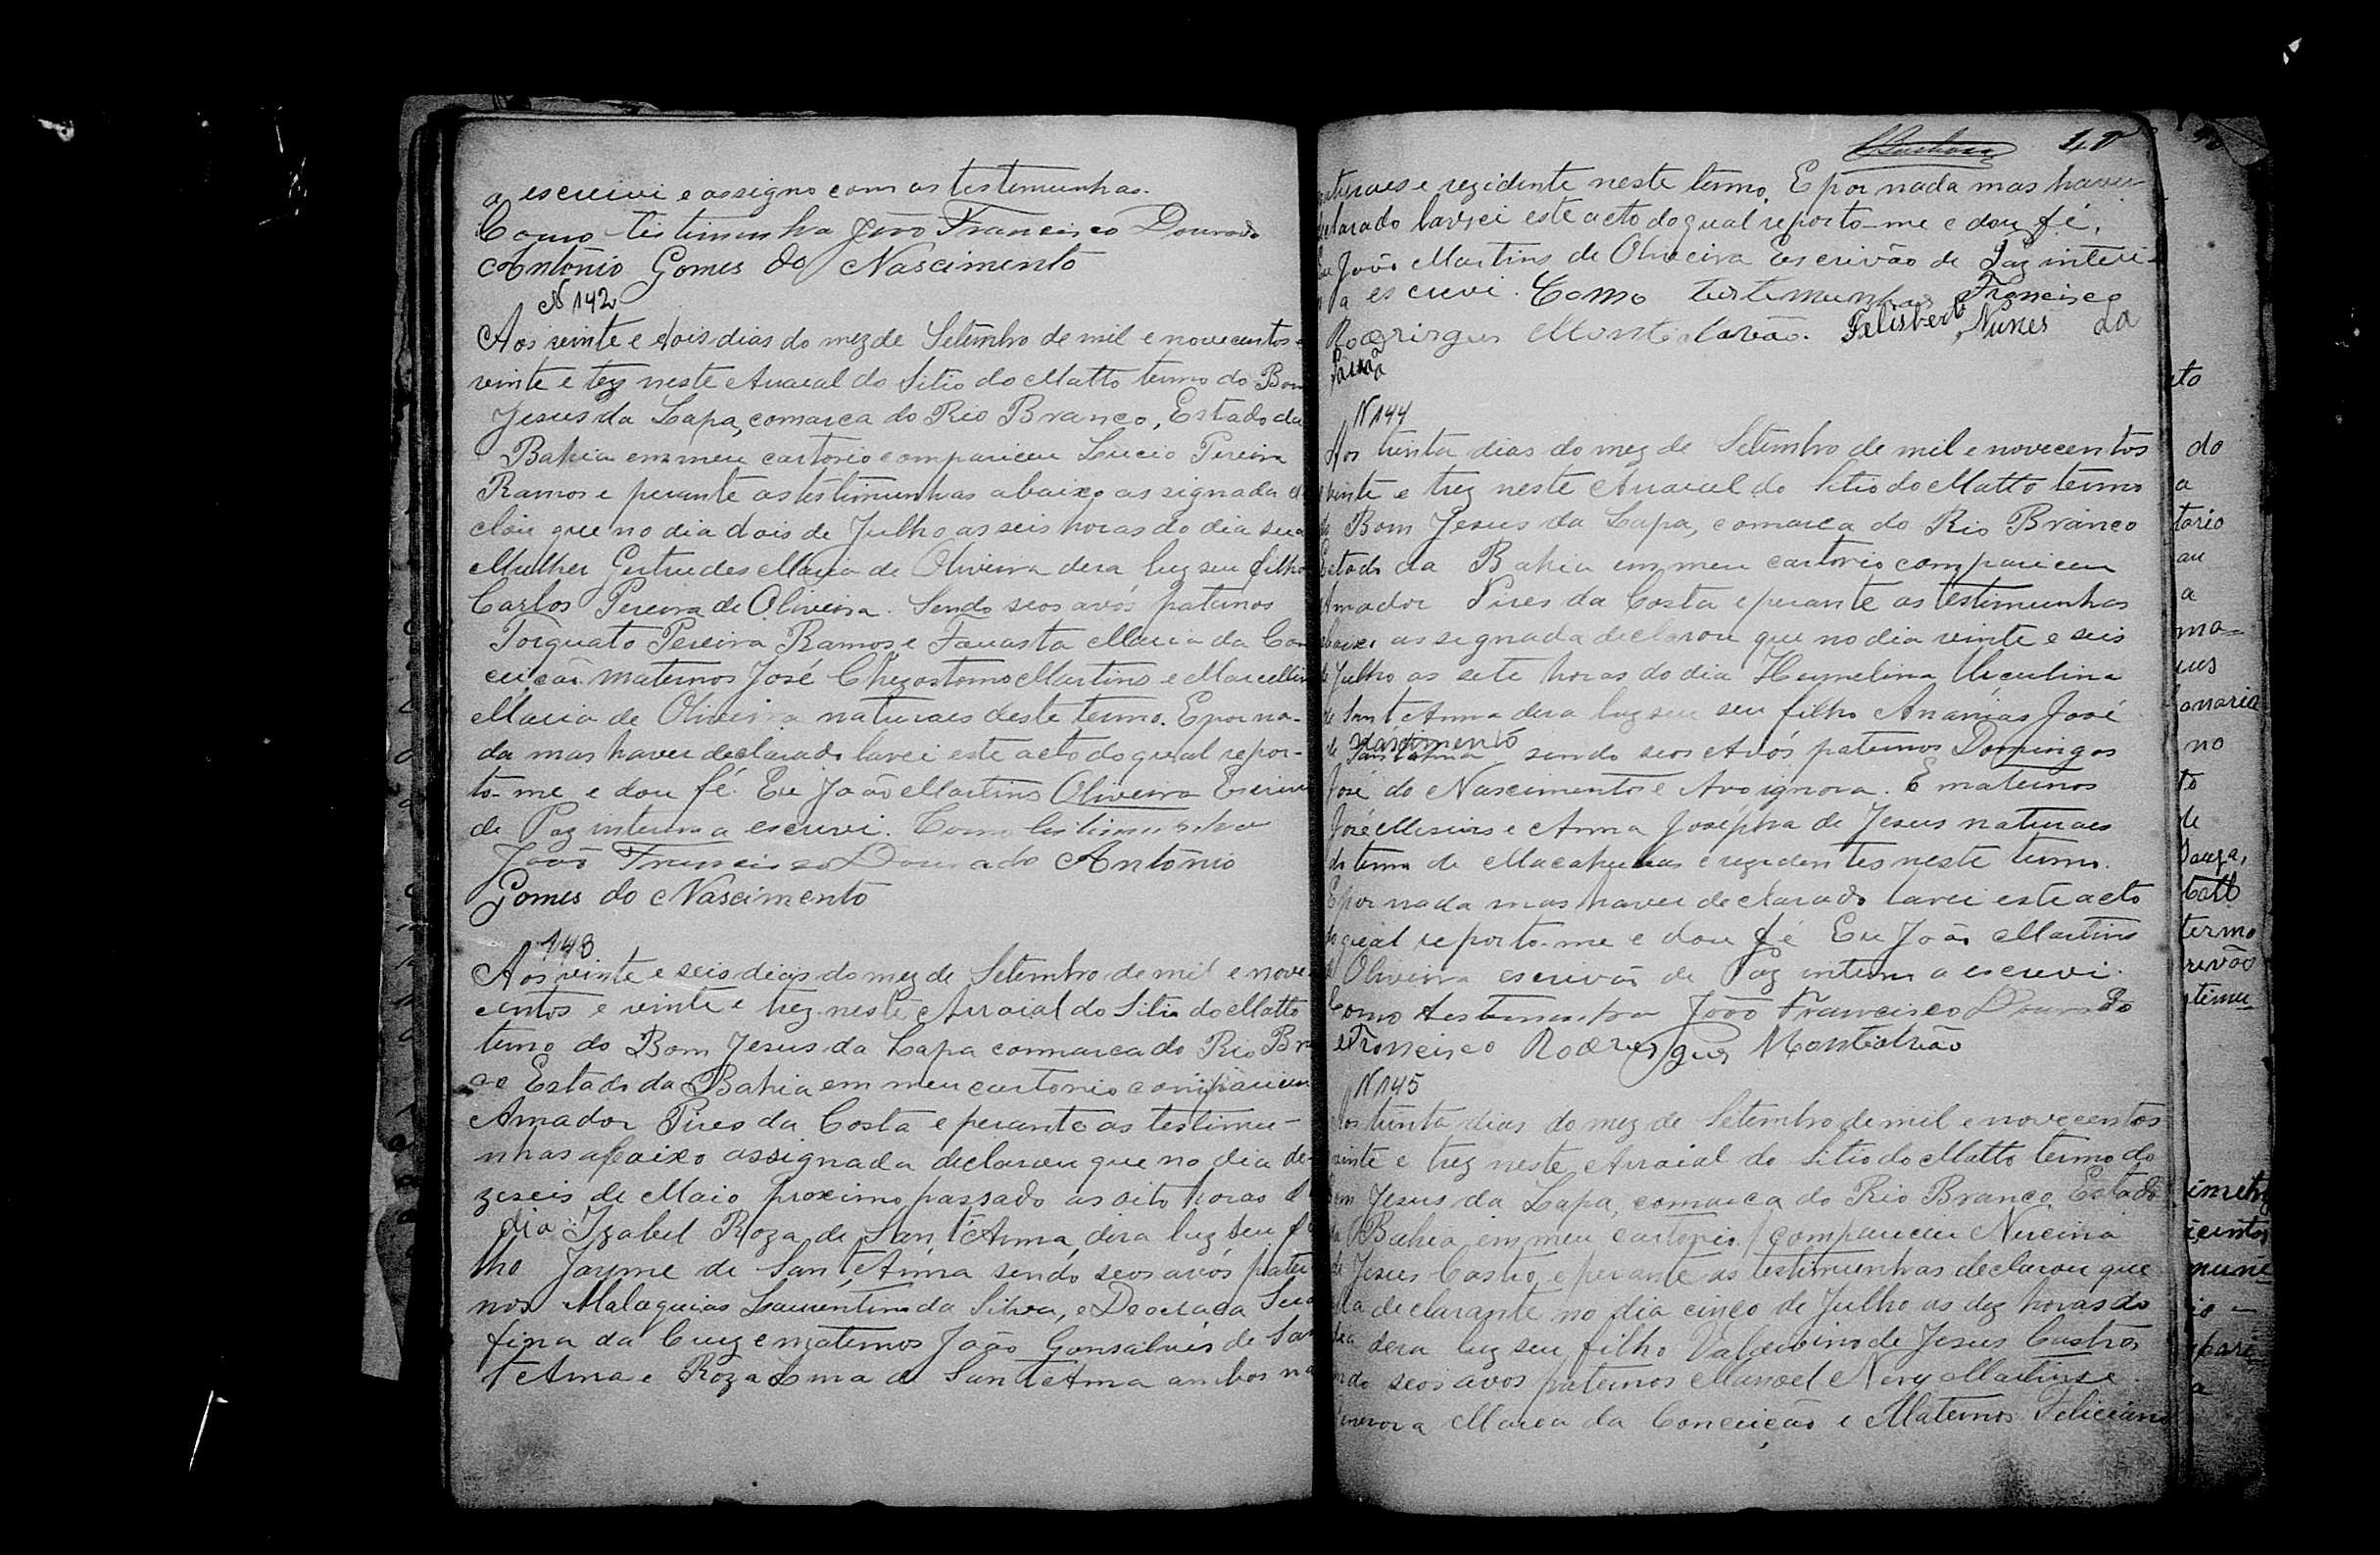 a escreivi e assigno com as testemunhas.
Como testimunha João Francisco Dourado
Antônio Gomes do Nascimento
N 142
Aos vinte e dois dias do mez de Setembro de mil e novecentos e
vinte e trez neste Arraial do Sitio do Matto termo do Bom
Jesus da Lapa, comarca do Rio Branco, Estado da
Bahia em meu cartorio compareceu Lucio Pereira
Ramos e perante as testimunhas abaixo assignada de
clou que no dia dois de Julho as seis horas do dia sua
Mulher Gertrudes Maria de Oliveira dera luz seu filho
Carlos Pereira de Oliveira. Sendo seos avós paternos
Torquato Pereira Ramos e Fausta Maria da Con
ceição maternos José Chrizostomo Martins e Marcellin
Maria de Oliveira naturaes deste termo. E por na-
da mas haver declarado lavrei este acto do qual repor-
to-me e dou fé. Eu João Martins Oliveira Escriv
de Paz interino a escrevi. Como testimunha
João Francisco Dourado Antônio
Gomes do Nascimento
143
Aos vinte e seis dias do mez de Setembro de mil e nove
centos e vinte e trez neste Arraial do Sitio do Matto
termo do Bom Jesus da Lapa comarca do Rio Bra
co Estado da Bahia em meu cartorio compareceu
Amador Pires da Costa e perante as testimu-
nhas abaixo assignada declarou que no dia de-
zeseis de Maio proximo passado as oito horas d
dia Izabel Roza de Sant'Anna dera luz seu fi
lho Jayme de Sant'Anna sendo seos avós pater
nos Malaquias Laurentino da Silva, e Sera
fina da Cruz e maternos João Gonsalves de San
t'Anna e Roza de Sant'Anna ambos na
40
turaes e rezidente neste termo. E por nada mas haver
clarado lavrei este acto do qual reporto-me e dou fé.
Eu João Martins de Oliveira Escrivão de Paz interi-
a escrevi. Como testemunhas Francisco
Rodrigues Felisberto Nunes da
N 144
Aos trinta dias do mez de Setembro de mil e novecentos
vinte e trez neste Arraial do Sitio do Matto termo
do Bom Jesus da Lapa, comarca do Rio Branco
Estado da Bahia em meu cartorio compareceu
Amador Pires da Costa e perante as testimunhas
abaixo assignada declarou que no dia vinte e seis
de Julho as sete horas do dia Hermelina
de Sant'Anna dera luz seu seu filho Ananias José
nascimento
de Sant'Anna sendo seos Avós paternos Domingos
José do Nascimento e Avo ignora. E maternos
José e Anna Josépha de Jesus naturaes
do termo de Macahubas e rezidentes neste termo.
E por nada mas haver declarado lavrei este acto
do qual reporto-me e dou fé Eu João Martins
de Oliveira escrivão de Paz interino a escrevi.
Como testemunha João Francisco Dourado
e Francisco Rodrigues
N 145
Aos trinta dias do mez de Setembro de mil e novecentos
vinte e trez neste Arraial do Sitio do Matto termo do
Bom Jesus da Lapa, comarca do Rio Branco, Estado
da Bahia em meu cartorio compareceu
de Jesus Castro, e perante as testimunhas declarou que
declarante no dia cinco de Julho as dez horas do
dia dera luz seu filho Valdivino de Jesus Castro
ndo seos avos paternos Manoel Nery Martins e
Maria da Conceição e Maternos Feliciano